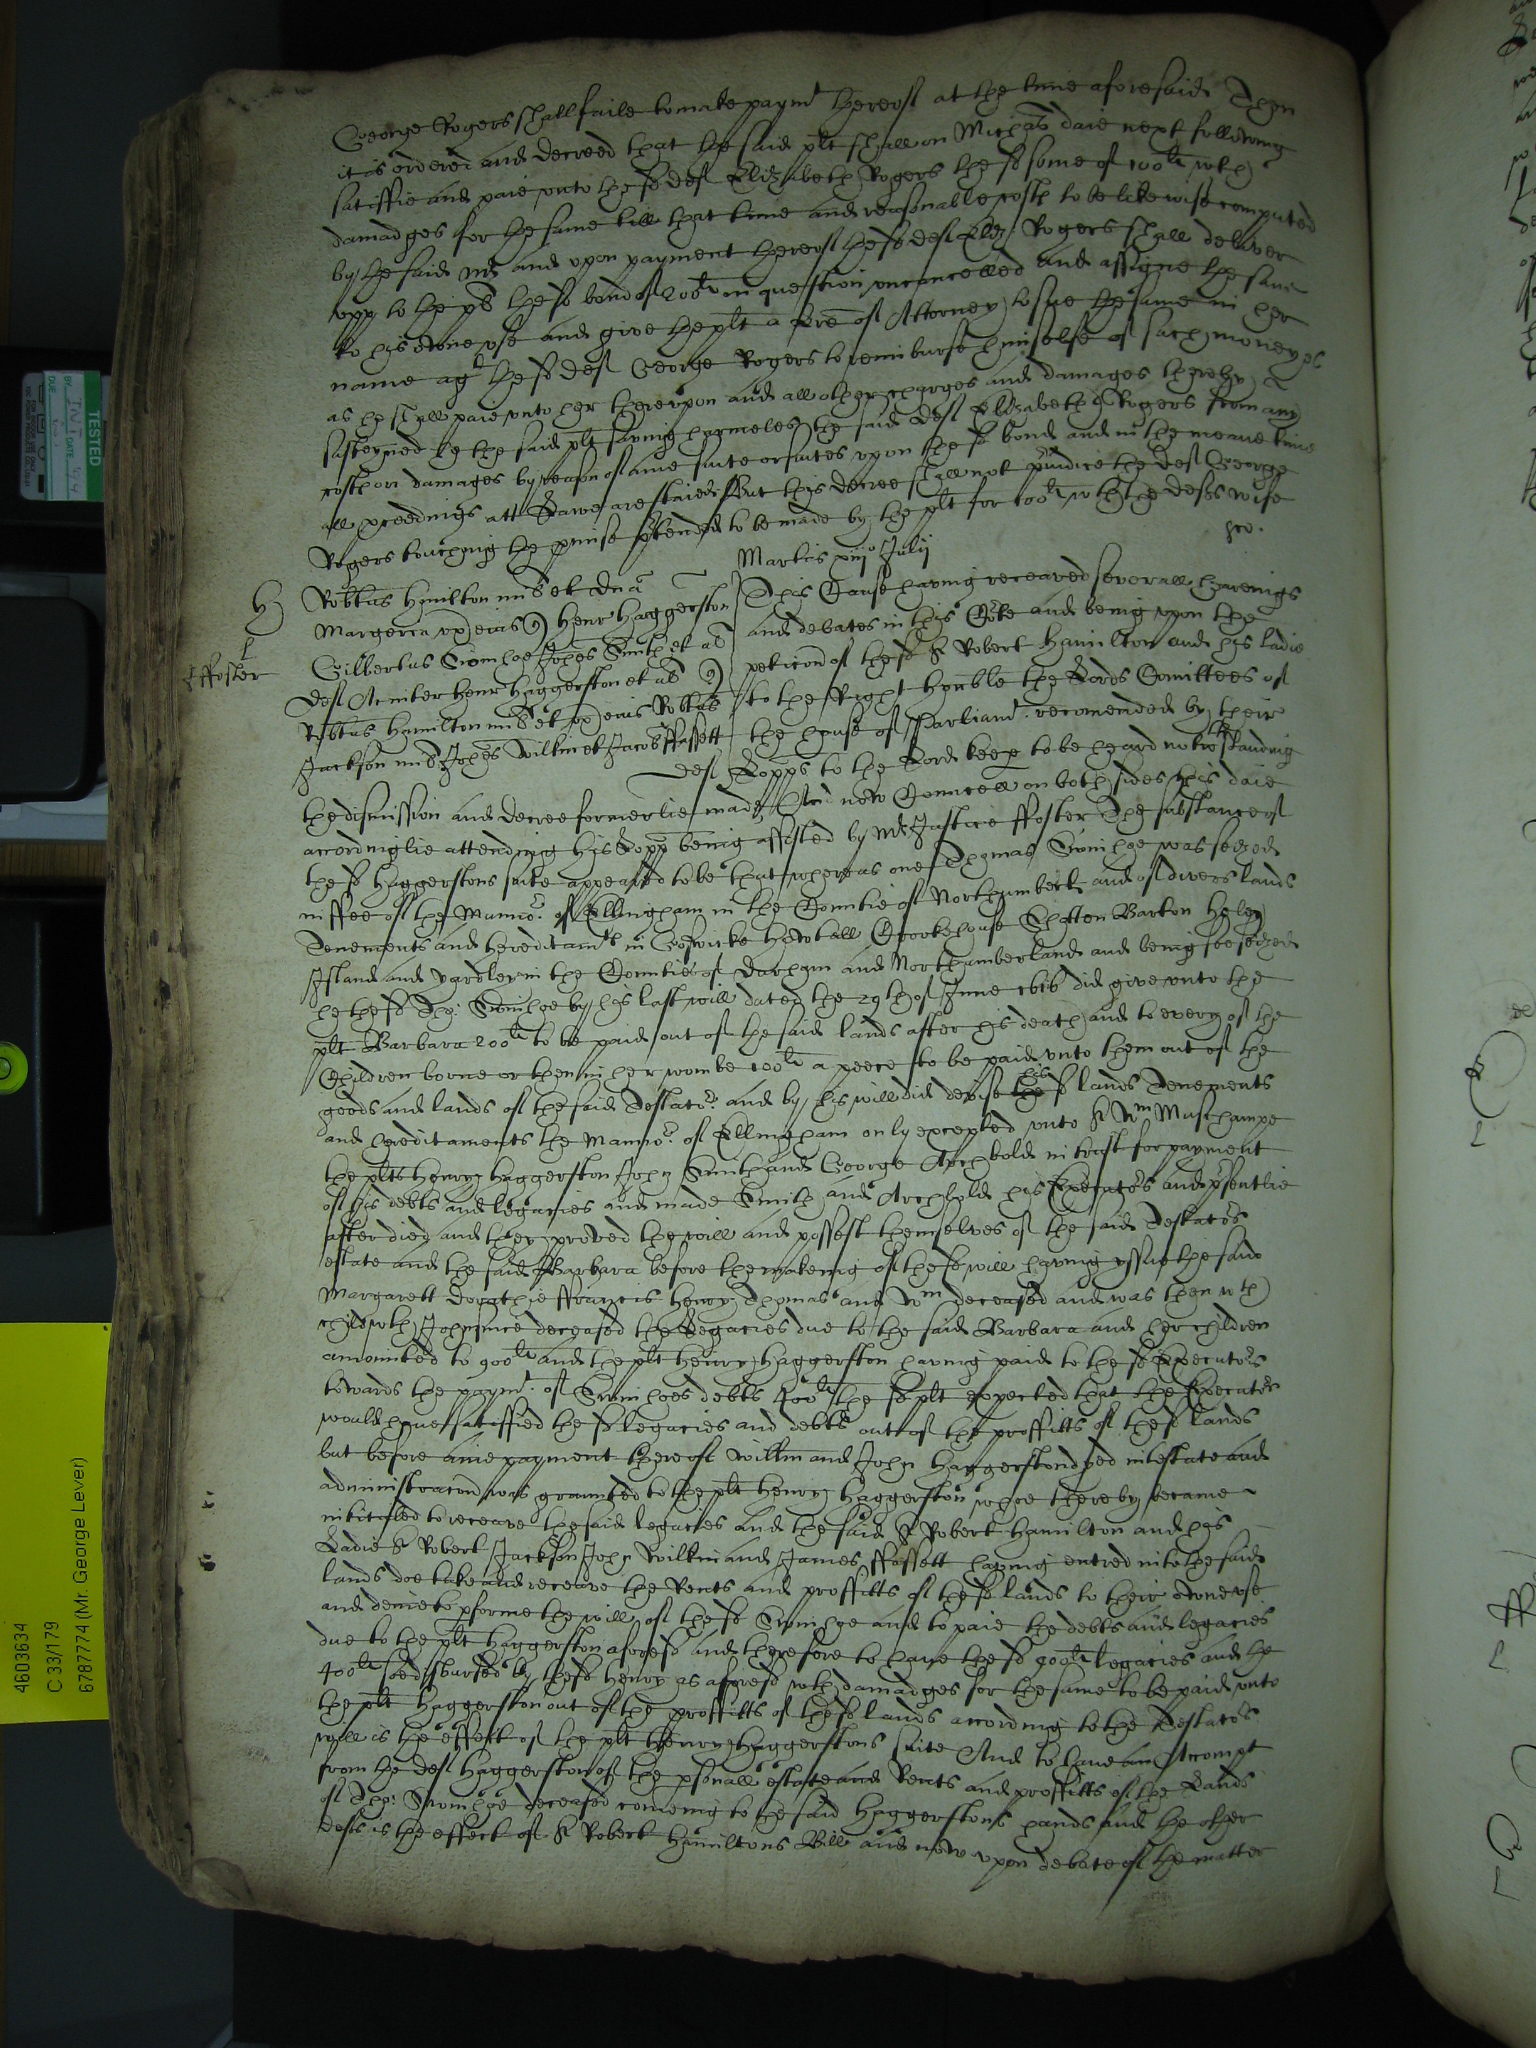 George Rogers shall faile to make paymt thereof at the time aforesaid Then
it is ordered and decreed that the said plt shall on Michas daie next following
satisfie and paie unto the sd deft Elizabeth Rogers the sd some of 100li wth
damadges for the same till that time and reasonable costs to be likewise computed
by the said Mr and upon payment thereof the sd deft Eliz: Rogers shall deliver
upp to the plt the sd bond of 200li in question uncancelled and assigne the same
to his owne use and give the plt a lre of Attorney to sue the same in her
name agt the sd deft George Rogers to reimburse himselfe of such moneyes
as he shall paie unto her thereupon and all other charges and damages thereby
susteyned by the said plt saving harmeles the said deft Elizabeth Rogers from any
costs or damages by reason of anie suite or suites upon the sd bond and in the meane time
all proceedings att Lawe are staied But this decree shall not preiudice the deft George
Rogers touching the promise pretended to be made by the plt for 100li wth the defts wife
Martis xiiijo Julij
Robtus Hamilton miles et dna
Margeria ux eius Henr Haggerston
Gilbertus Swinhoe Johes Smith et al
deft Aciniter Henr Haggerston et al
Robtus Hamilton miles et ux eius Robtus
Jackson miles Johes Wilkin et Jacob ffassett
deft
H
ffoster
This Cause having receaved severall hearings
and debates in this Corte and being upon the
peticon of the sd Sr Robert Hamilton and his Ladie
to the Right Honble the Lords Comittees of
the house of Parliamt recomended by their
Lopps to the Lord keep to be heard notwthstanding
the dismission and decree formerlie made And now Councell on both sides this daie
accordinglie attending his Lopp being assisted by Mr Justice ffoster The substance of
the sd Haggerstons suite appeared to be that whereas one Thomas Swinhoe was seized
in ffee of the Mannor of Ellingham in the Countie of Northumberld and of divers lands
Tenements and hereditamts in Goswicke Hawhall Brockhouse Chatton Barton Holey
Island and Yardley in the Counties of Durham and Northumberland and being soe seized
he the sd Tho: Swinhoe by his last will dated the 29th of June 1616 did give unto the
plt Barbara 200li to be paid out of the said lands after his death and to every of the
Children borne or then in her wombe 100li a peece to be paid unto them out of the
goods and lands of the said Testator and by his will did devise his sd lands Tenements
and hereditaments the Mannor of Ellingham only excepted unto Sr Wm Muschampe
the plts Henry Haggerston John Smith and George Archbold in trust for payment
of his debts and legacies and made Smith and Archbold his Executors and presentlie
after died and they proved the will and possest themselves of the said Testators
estate and the said Barbara before the makeing of the sd will having yssue the said
Margarett Dorothie ffrancis Henry Thomas and Wm deceased and was then wth
child wth John since deceased the legacies due to the said Barbara and her children
amounted to 900li and the plt Henry Haggerston having paid to the sd Executors
towards the paymt of Swinhoes debts 400li the sd plt expected that the Executors
would have satisfied the sd legacies and debts out of the proffitts of the sd lands
but before anie payment thereof Willm and John Haggerston dyed intestate and
administracon was graunted to the plt Henry Haggerston whoe thereby became
intituled to receave the said legacies and the said Sr Robert Hamilton and his
Ladie Sr Robert Jackson John Wilkin and James ffossett having entred into the said
lands doe take and receave the Rents and proffitts of the sd lands to their owne use
and denie to pforme the will of the sd Swinhoe and to paie the debts and legacies
due to the plt Haggerston aforesd and therefore to have the sd 900li legacies and the
400li soe disbursed by the sd Henry as aforesd wth damadges for the same to be paid unto
the plt Haggerston out of the proffitts of the sd lands according to the Testators
will is the effect of the plt Henry Haggerstons suite And to have an Accompt
from the deft Haggerston of the psonall estate and Rents and proffitts of the Lands
of Tho: Swinhoe deceased comeing to the said Haggerstons hands and the other
defts is the effect of Sr Robert Hamiltons Bill and now upon debate of the matter
4603634
C 33/179
6787774 (Mr. George Lever)
TESTED
BY
DATE
DUE